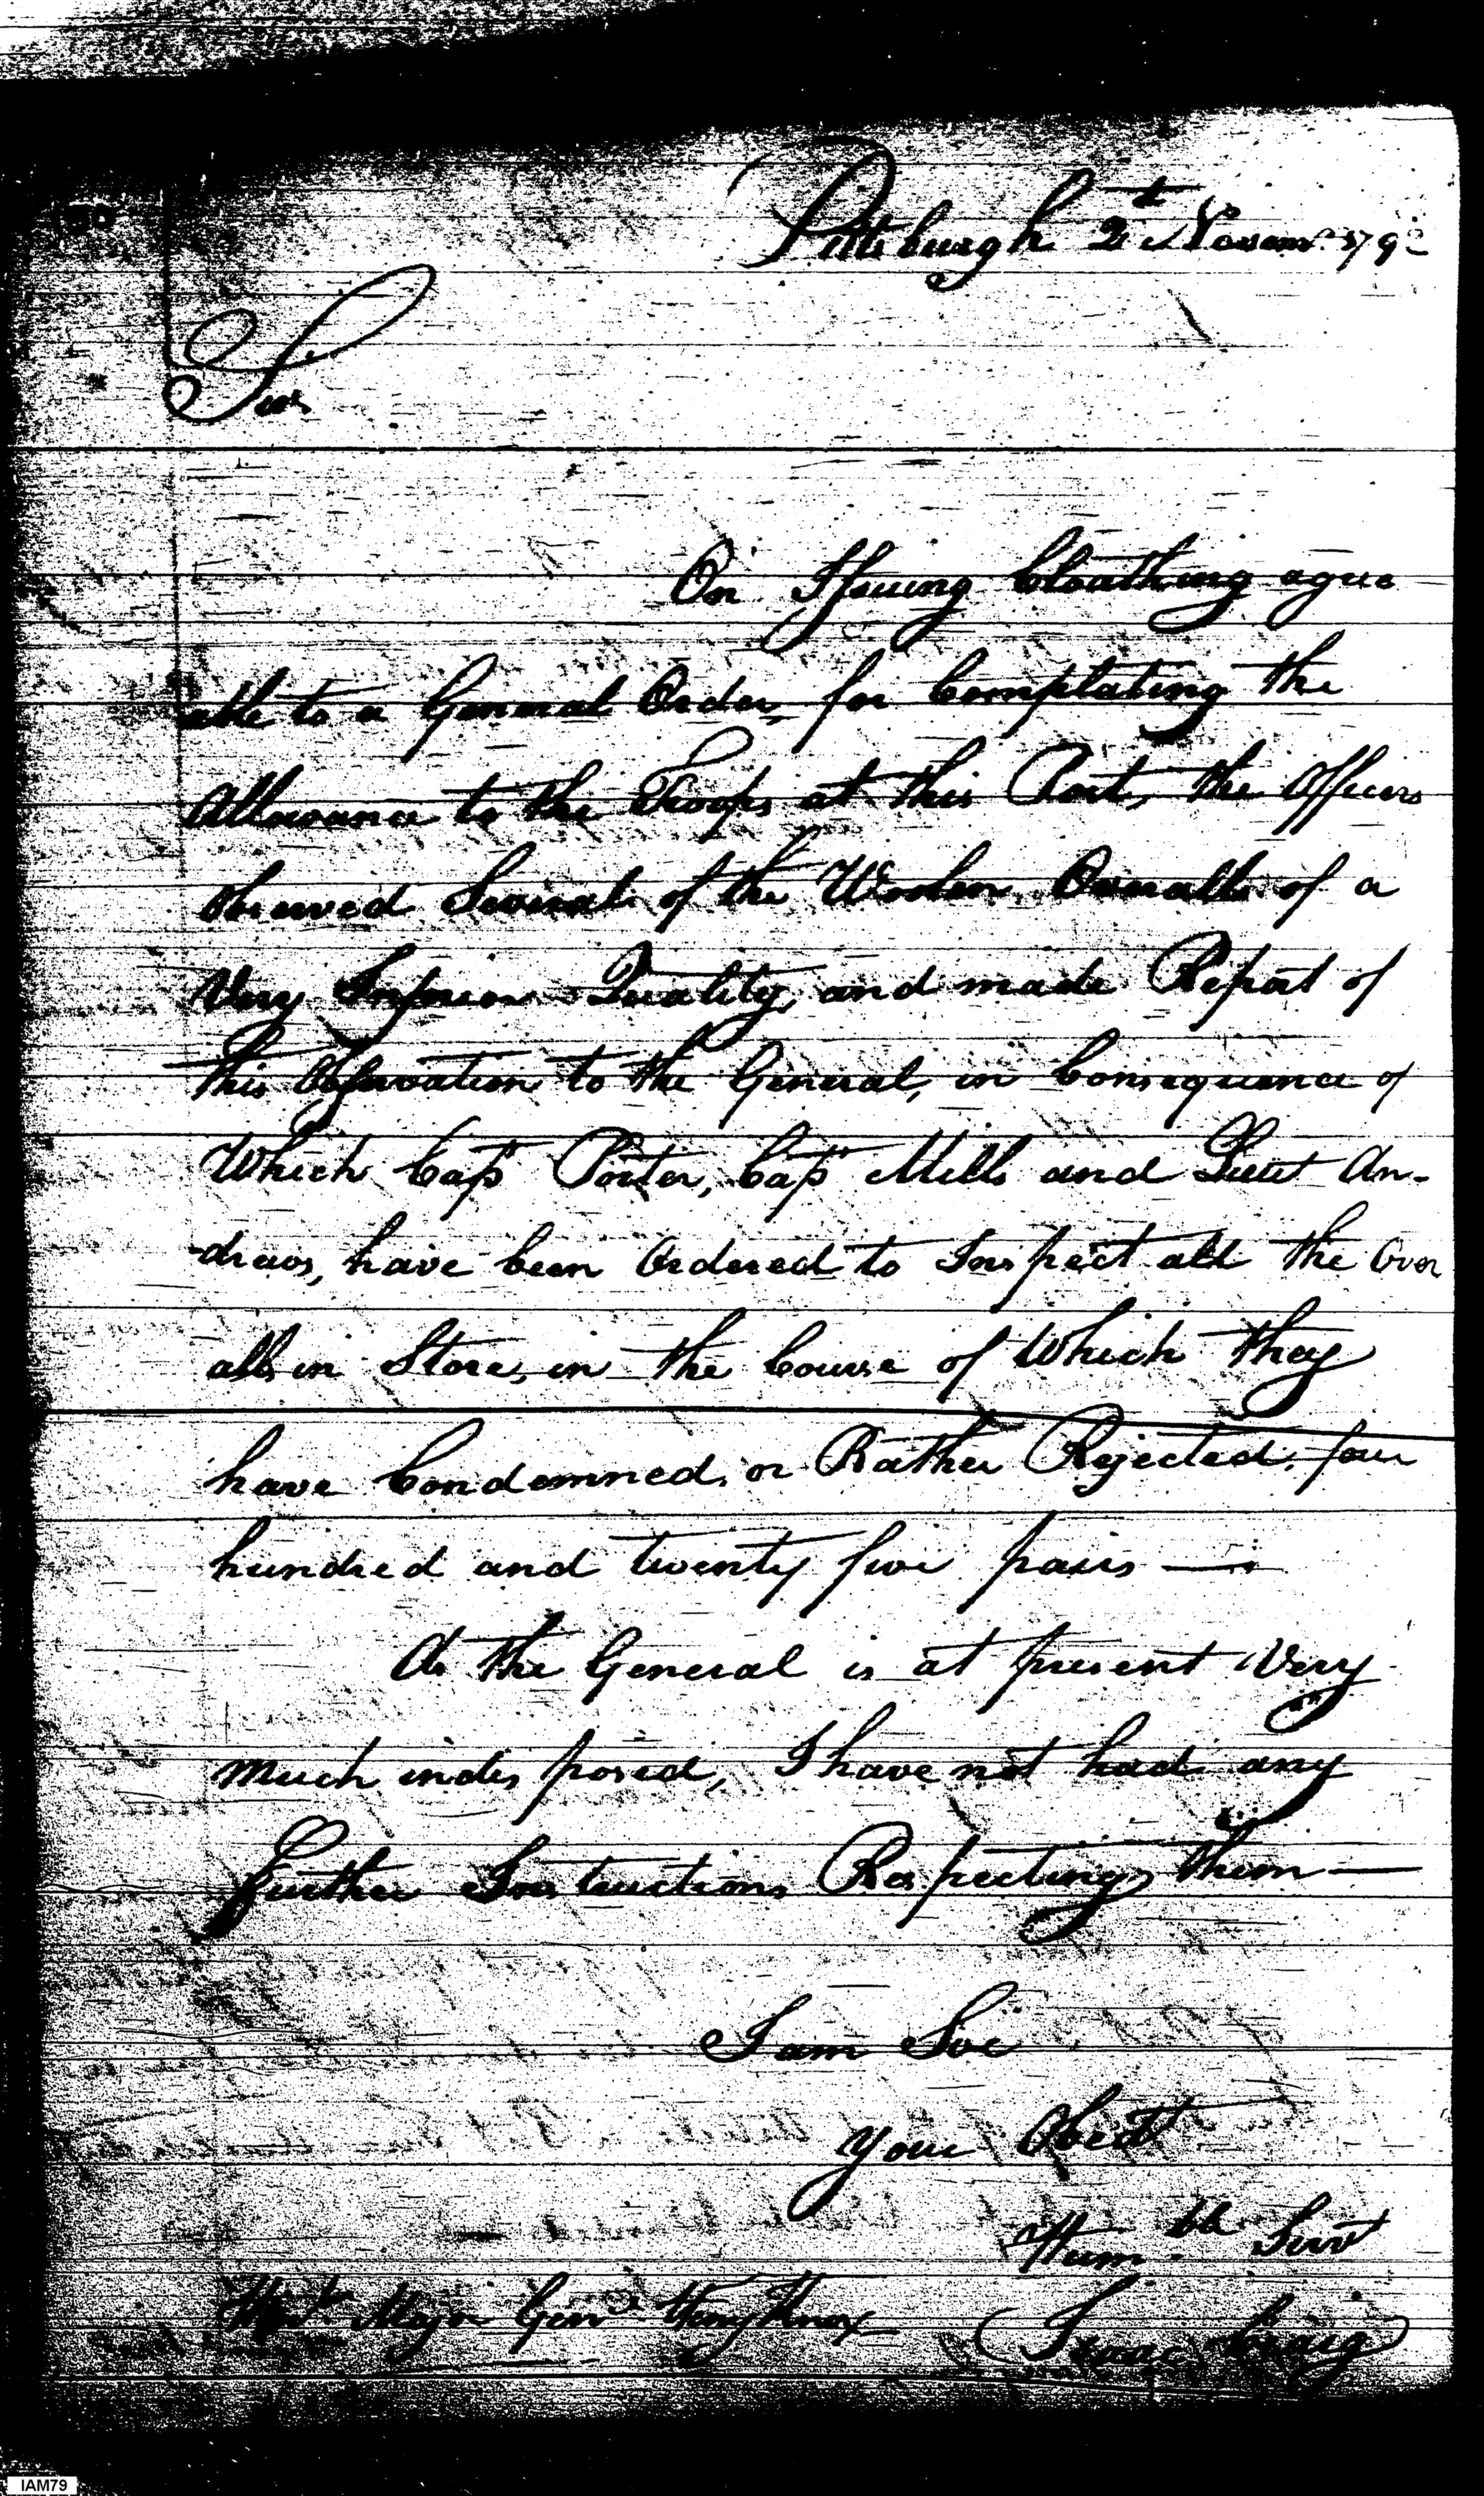 Pittsburgh 2d Novemr 1792
Sir
On Issuing Cloathing agree
able to a General Order, for Compleating the
Allowance to the Troops at this Post, the Officers
observed Several of the Woolen Overalls of a
Very Inferior Quality, and made Report of
this Observation to the General, in Consequence of
Which Capt Porter, Capt Mills and Lieut An-
-drews, have been Ordered to Inspect all the Over
alls in Store, in the Course of Which they
have Condemned, or Rather Rejected, four
hundred and twenty five pairs —
As the General is at present Very
Much indisposed, I have not had any
Further Instructions Respecting them —
I am Sir
Your Obedt
Humble Servt
Isaac Craig
Honble Major Genl Henry Knox
IAM79